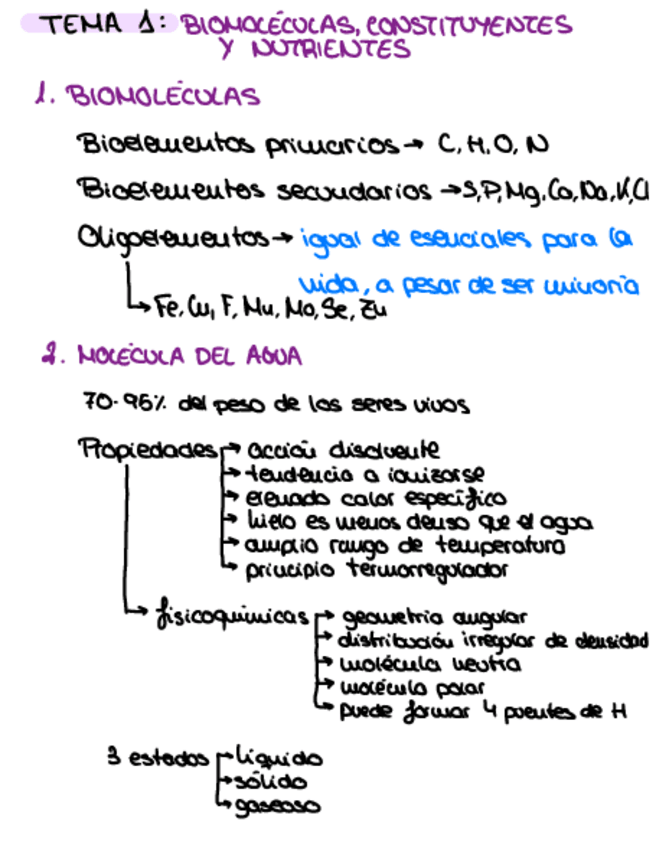 TEMA 1: BIOMOLÉCULAS, CONSTITUYENTES
Y NUTRIENTES
1. BIOMOLÉCULAS
Bioelementos primarios → C, H, O, N
Bioelementos secundarios → S, P, Mg, Ca, Na, K, Cl
Oligoelementos → igual de esenciales para la
vida, a pesar de ser minoría
↳ Fe, Cu, F, Mn, Mo, Se, Zn
2. MOLÉCULA DEL AGUA
70-95% del peso de los seres vivos
Propiedades → acción disolvente
→ tendencia a ionizarse
→ elevado calor específico
→ hielo es menos denso que el agua
→ amplio rango de temperatura
→ principio termorregulador
→ fisicoquímicas → geometría angular
→ distribución irregular de densidad
→ molécula neutra
→ molécula polar
→ puede formar 4 puentes de H
3 estados → líquido
→ sólido
→ gaseoso